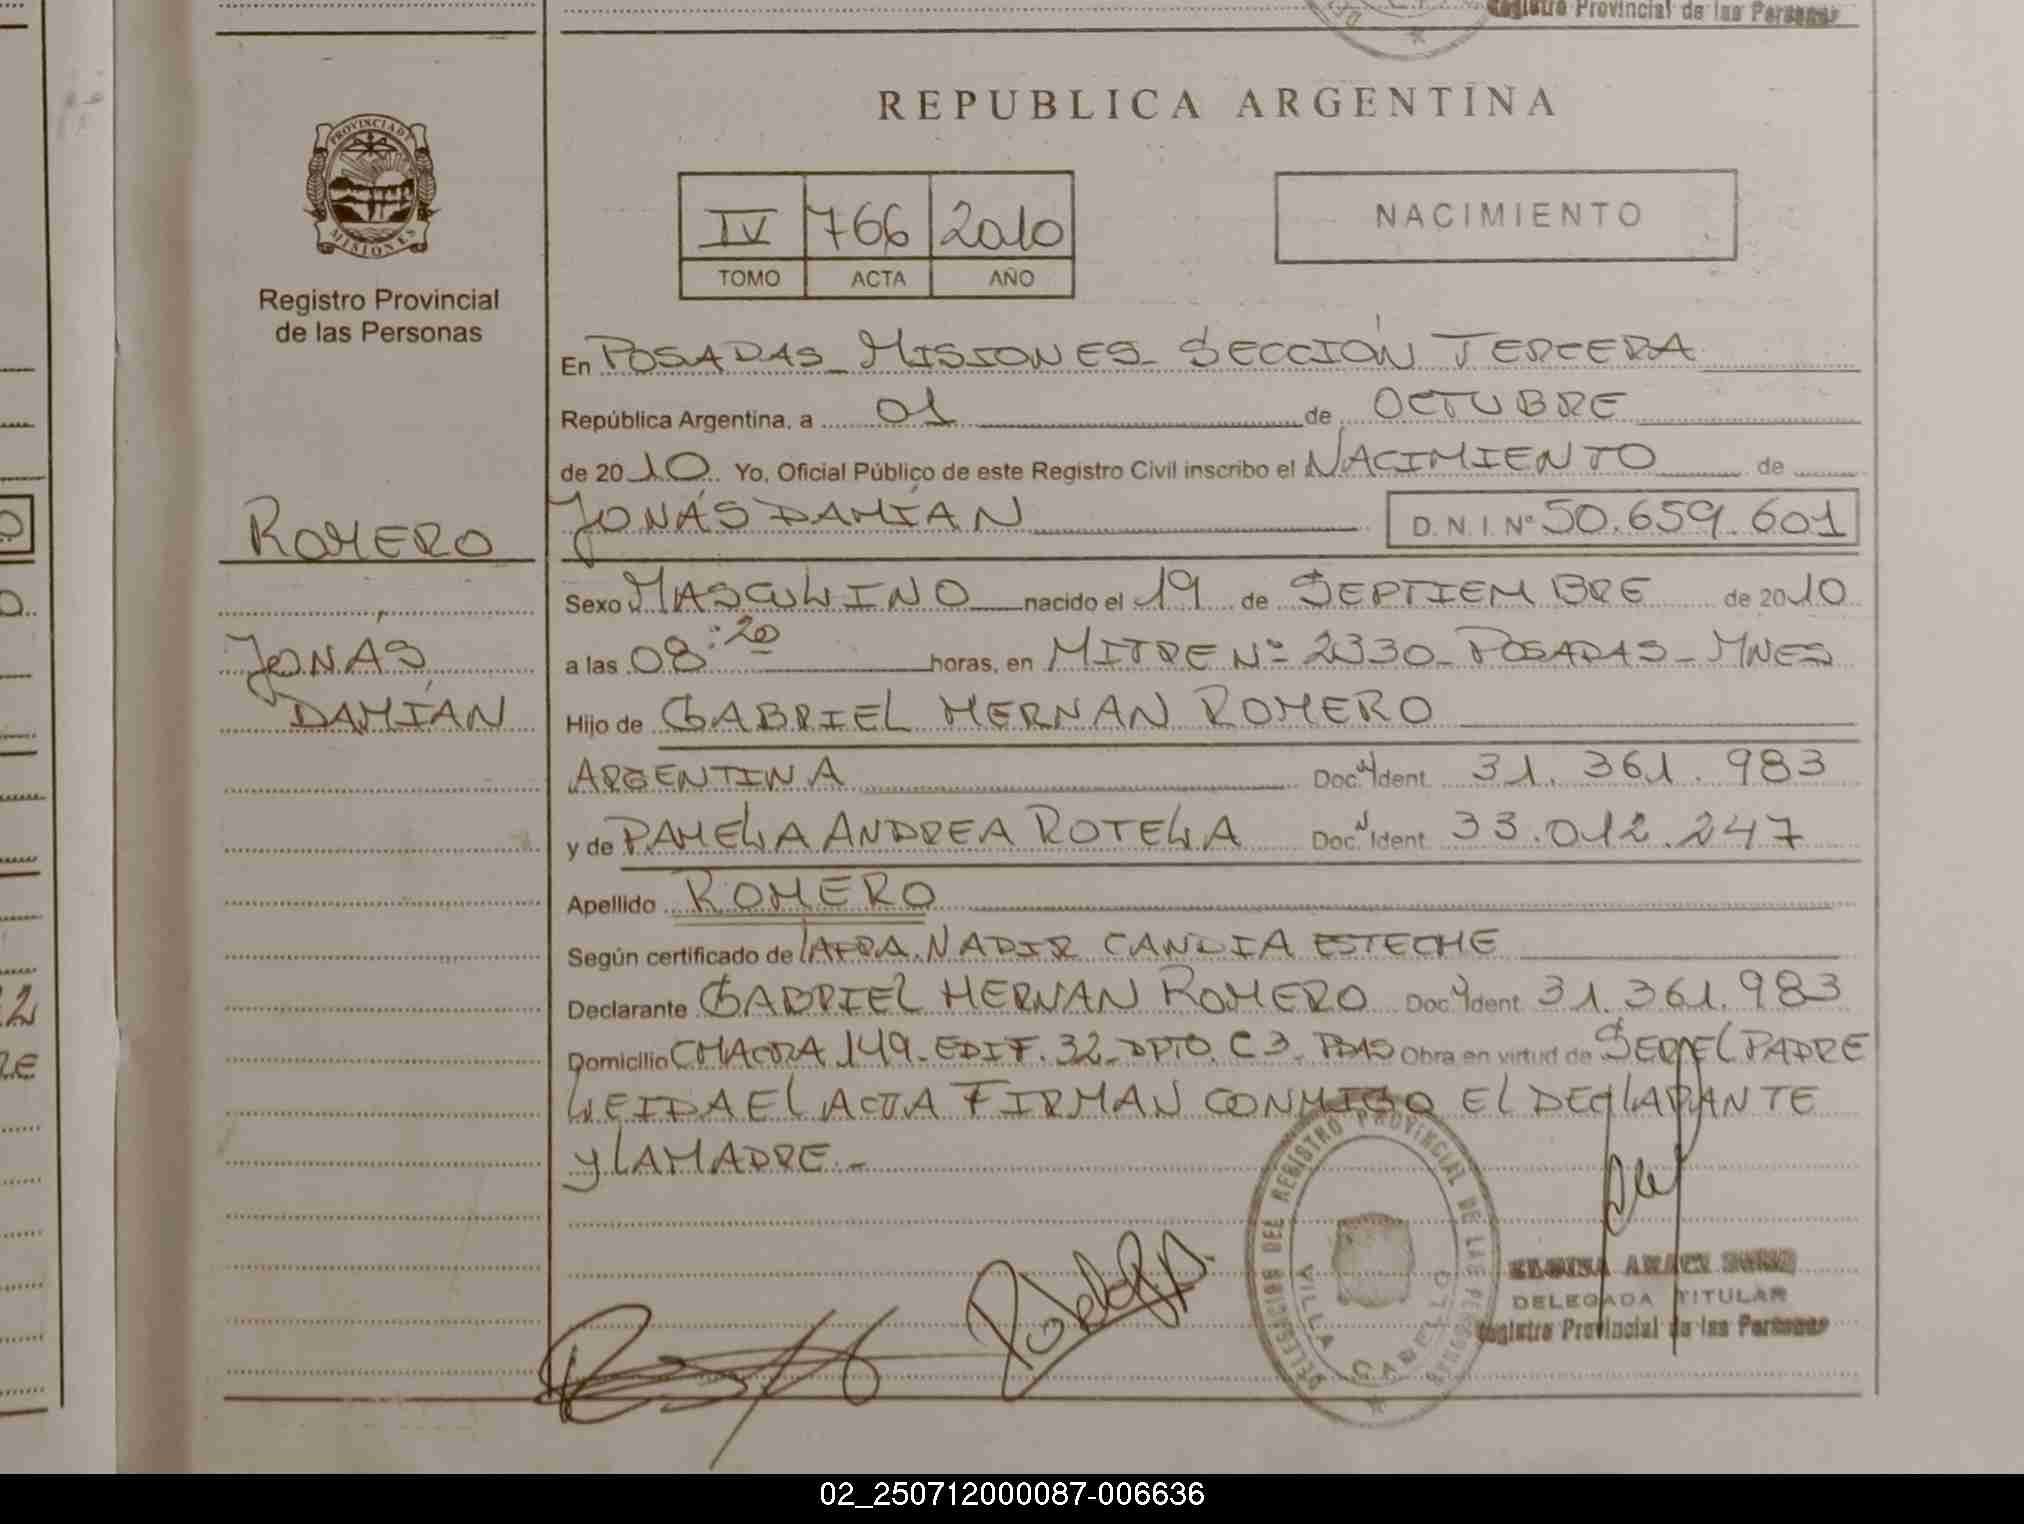 Registro Provincial de las Personas
REPUBLICA ARGENTINA
PROVINCIA DE
MISIONES
Registro Provincial
de las Personas
IV 766 2010
TOMO ACTA AÑO
NACIMIENTO
En POSADAS_MISIONES_ SECCIÓN TERCERA
República Argentina, a 01 de OCTUBRE
de 2010 Yo, Oficial Público de este Registro Civil inscribo el NACIMIENTO de
ROMERO
JONÁS DAMÍAN D.N.I. Nº 50.659.601
Sexo MASCULINO nacido el 19 de SEPTIEMBRE de 2010
JONÁS
a las 08:20 horas, en MITRE Nº 2330_POSADAS_MNES
DAMÍAN
Hijo de GABRIEL HERNAN ROMERO
ARGENTINA Doc. Ident. 31.361.983
y de PAMELA ANDREA ROTELA Doc. Ident. 33.012.247
Apellido ROMERO
Según certificado de LA DRA. NADIR CANDIA ESTECHE
Declarante GABRIEL HERNAN ROMERO Doc. Ident. 31.361.983
Domicilio CHACRA 149_EDIF. 32_DPTO. C3_PDAS Obra en virtud de SER EL PADRE
LEIDA EL ACTA FIRMAN CONMIGO EL DECLARANTE
Y LA MADRE._
DELEGACION DEL REGISTRO PROVINCIAL DE LAS PERSONAS
VILLA CABELLO
DELEGADA TITULAR
Registro Provincial de las Personas
02_250712000087-006636